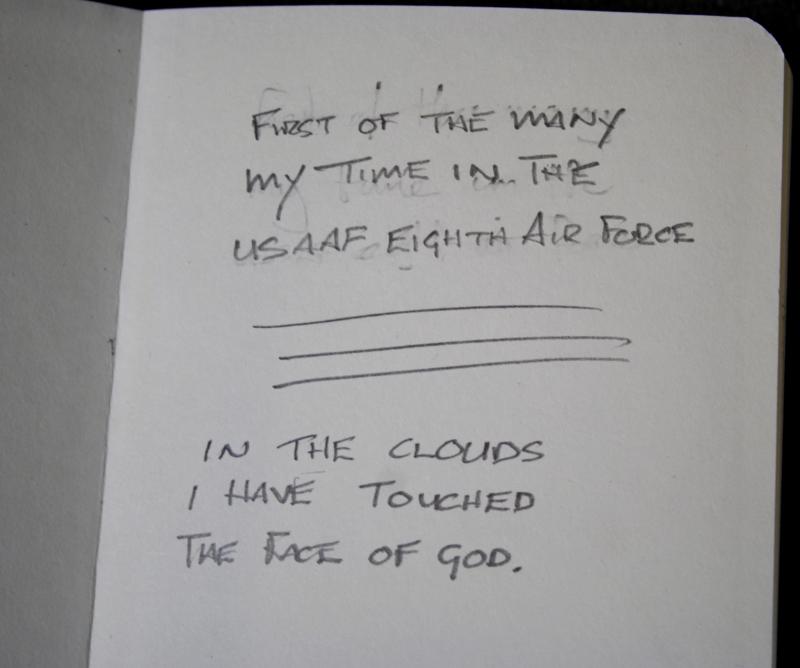 FIRST OF THE MANY
MY TIME IN THE
USAAF EIGHTH AIR FORCE
IN THE CLOUDS
I HAVE TOUCHED
THE FACE OF GOD.